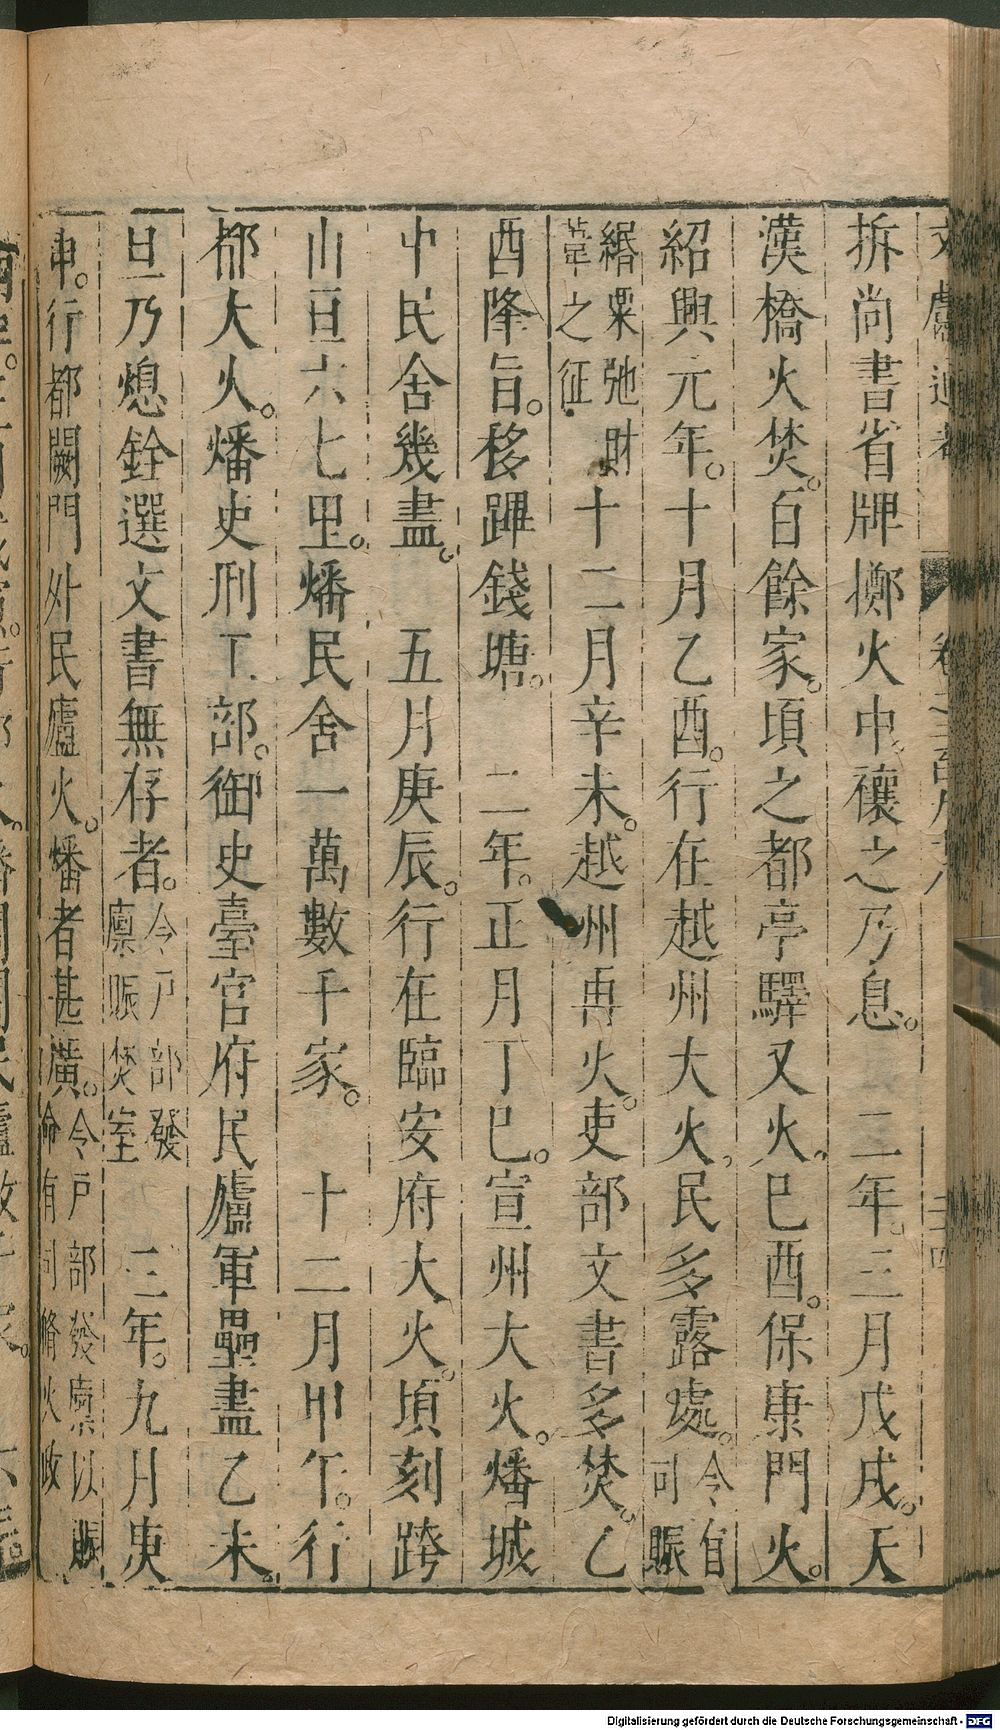 拆尚書省牌擲火中。禳之乃息。　二年。三月戊戌。天
漢橋火焚。百餘家。頃之都亭驛又火。巳酉。保康門火。
紹興元年。十月乙酉。行在越州大火。民多露處。令有司賑
緡粟弛財葦之征。十二月辛未。越州再火。吏部文書多焚。乙
酉降旨。移蹕錢塘。　二年。正月丁巳。宣州大火。燔城
中民舍幾盡。　五月庚辰。行在臨安府大火。頃刻跨
山亘六七里。燔民舍一萬數千家。　十二月甲午。行
都大火。燔吏刑工部。御史臺官府民廬軍壘盡乙未。
旦乃熄銓選文書無存者。令戶部發廩賑焚室　三年。九月庚
申。行都闕門外民廬火。燔者甚廣。令戶部發廩以賑命有司脩火政
Digitalisierung gefördert durch die Deutsche Forschungsgemeinschaft - DFG